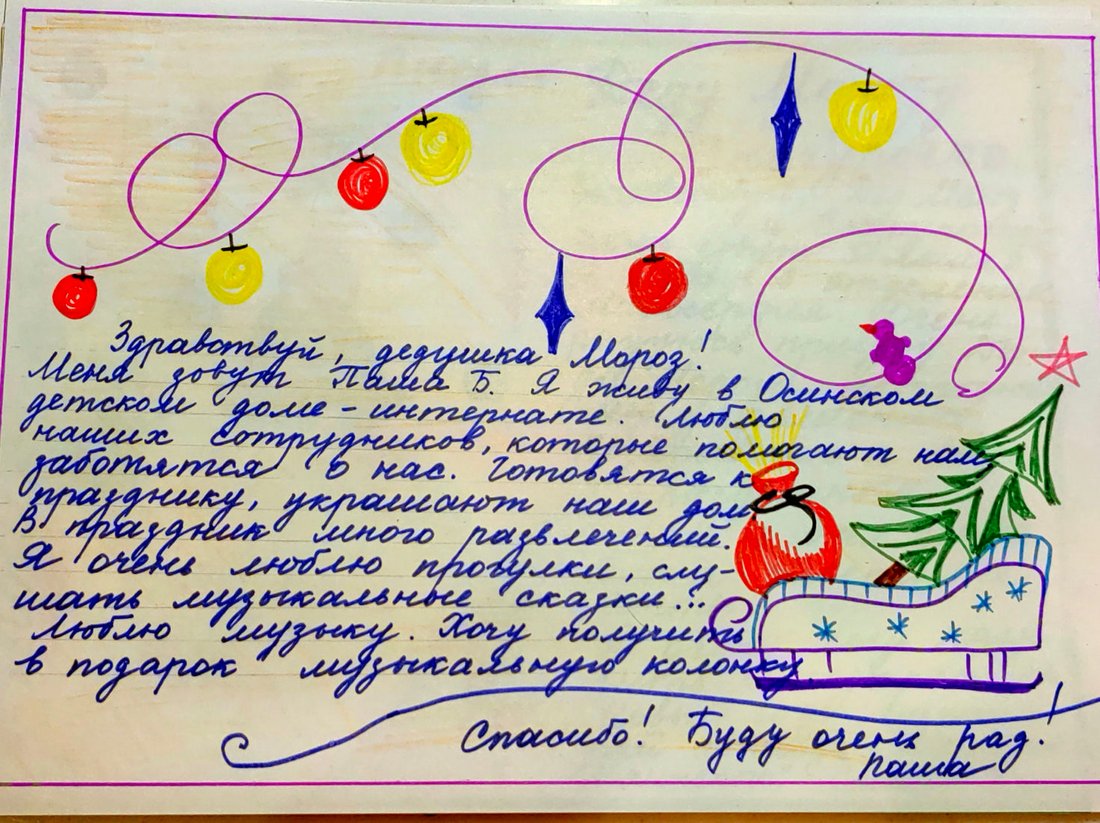 Здравствуй, дедушка Мороз!
Меня зовут Паша Б. Я живу в Осинском
детском доме-интернате. Люблю
наших сотрудников, которые помогают нам
заботятся о нас. Готовятся к
празднику, украшают наш дом
В праздник много развлечений.
Я очень люблю провулки, слу-
шать музыкальные сказки...
Люблю музыку. Хочу получить
в подарок музыкальную колонку
Спасибо! Буду очень рад!
Паша